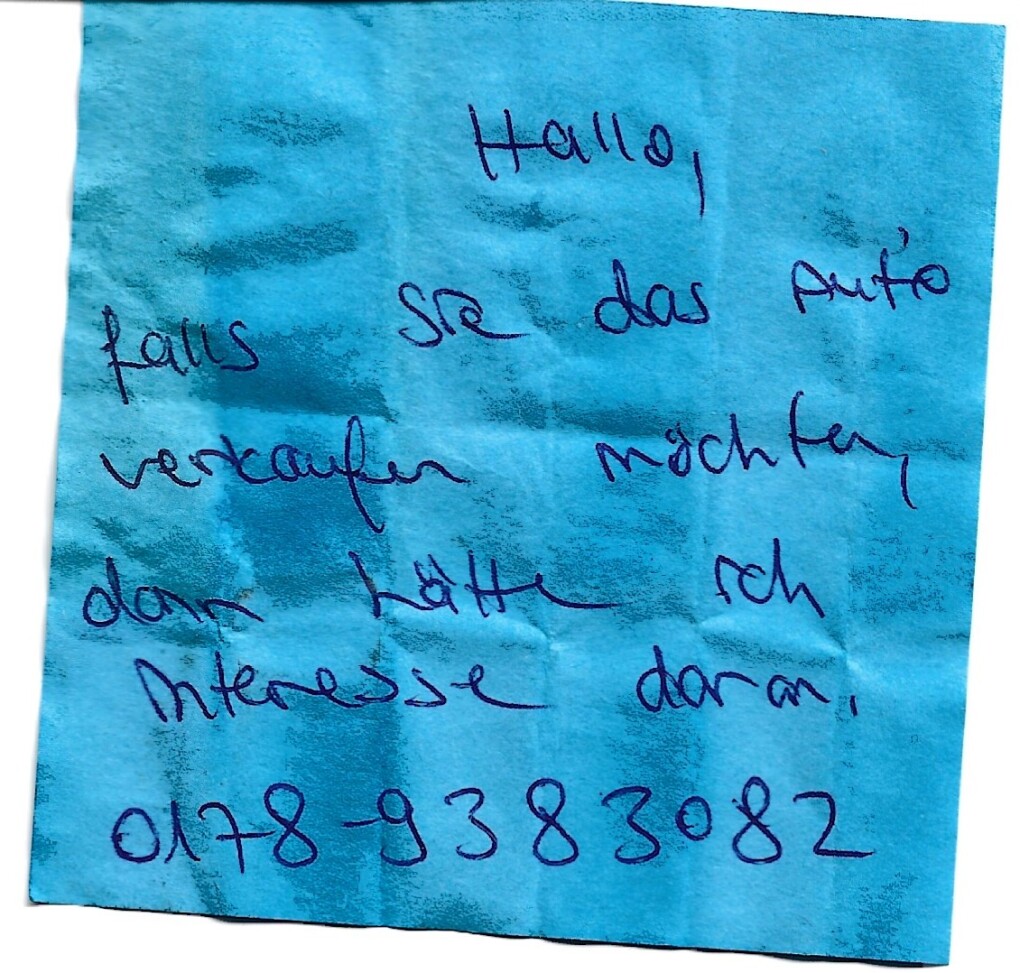 Hallo,
falls Sie das Auto
verkaufen möchten,
dann hätte ich
Interesse daran.
0178-9383082